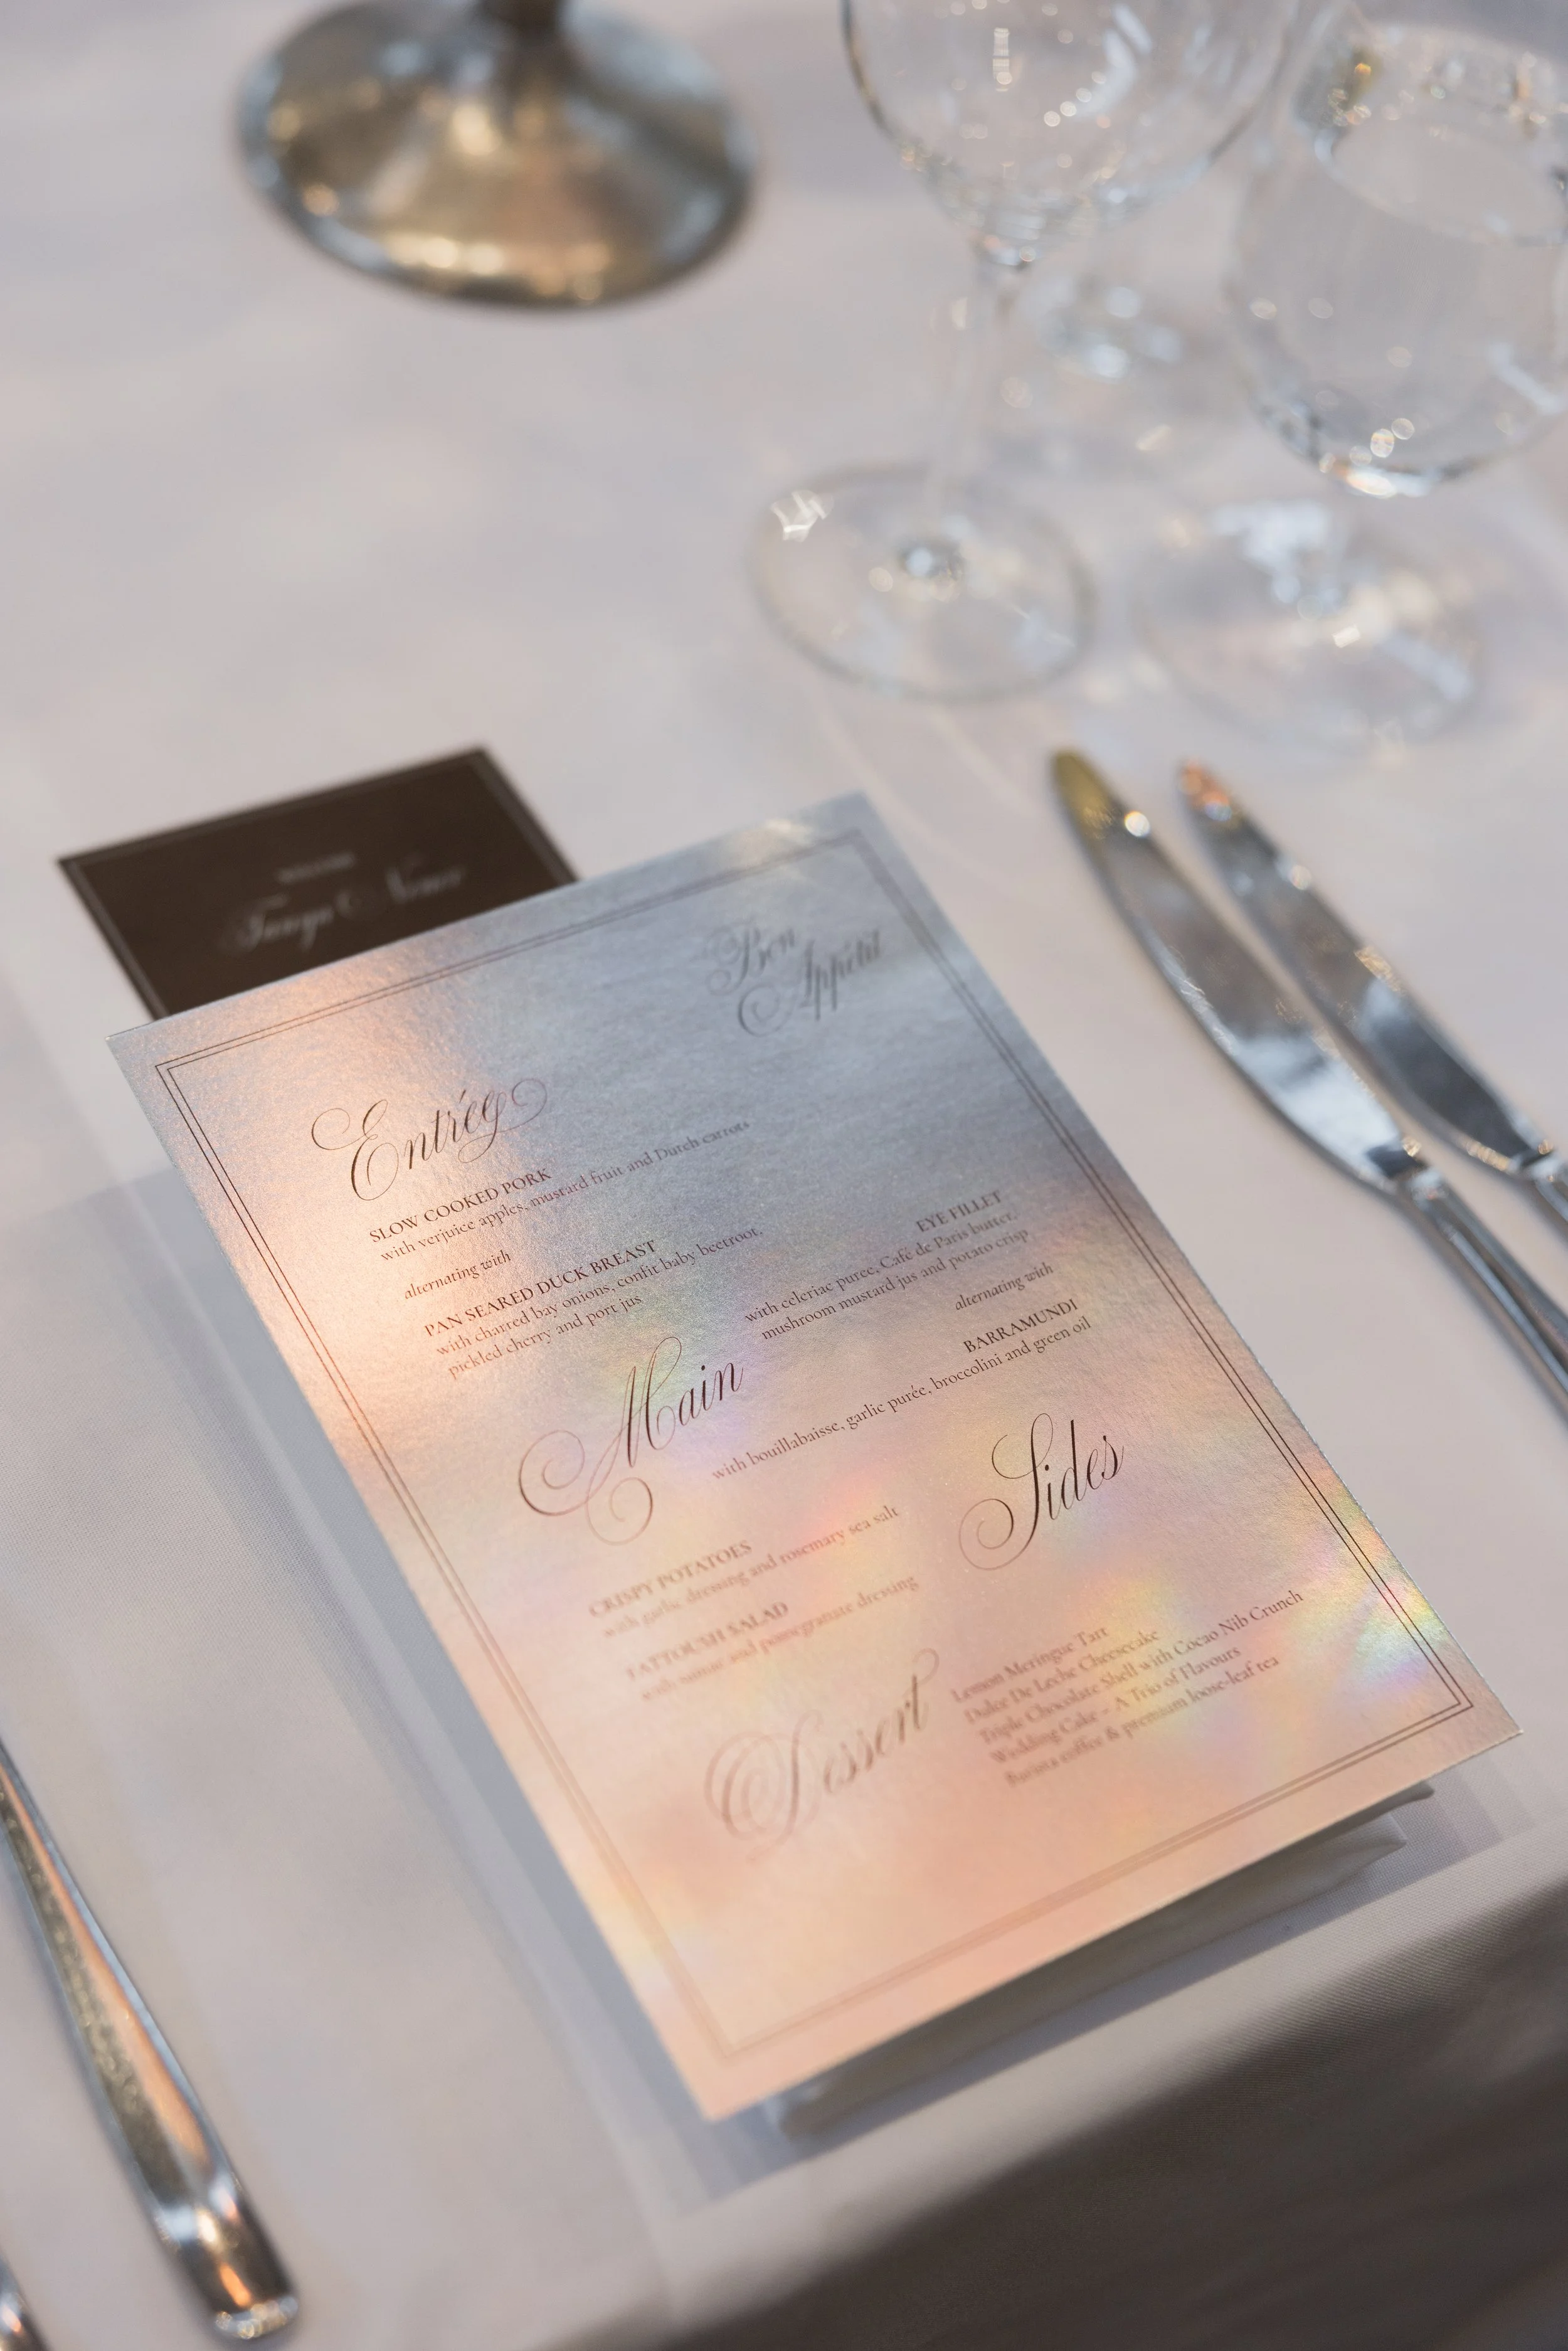 WELCOME
Bon
Appétit
Entrée
SLOW COOKED PORK
with verjuice apples, mustard fruit and Dutch carrots
alternating with
PAN SEARED DUCK BREAST
with charred bay onions, confit baby beetroot,
pickled cherry and port jus
Main
EYE FILLET
with celeriac puree, Café de Paris butter,
mushroom mustard jus and potato crisp
alternating with
BARRAMUNDI
with bouillabaisse, garlic purée, broccolini and green oil
Sides
CRISPY POTATOES
with garlic dressing and rosemary sea salt
FATTOUSH SALAD
with sumac and pomegranate dressing
Dessert
Lemon Meringue Tart
Dulce De Leche Cheesecake
Triple Chocolate Shell with Cocao Nib Crunch
Wedding Cake – A Trio of Flavours
Barista coffee & premium loose-leaf tea